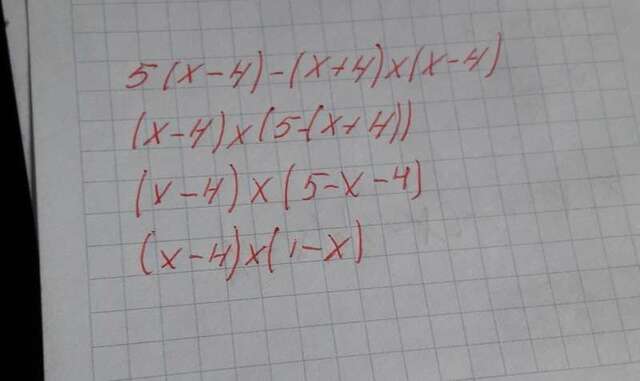 5(x-4)-(x+4)x(x-4)
(x-4)x(5-(x+4))
(x-4)x(5-x-4)
(x-4)x(1-x)